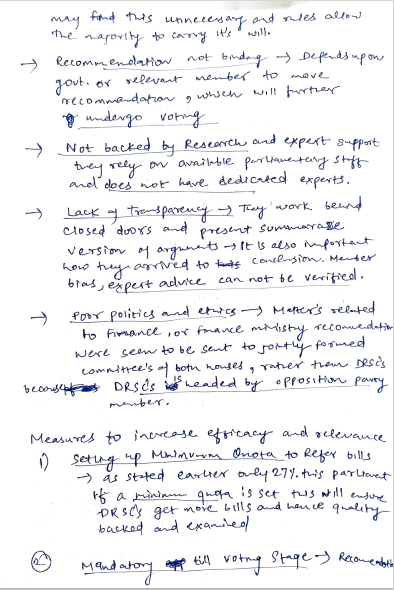 may find this unnecessary and rules allow
the majority to carry it's will.
→ Recommendation not binding → Depends upon
govt. or relevant member to move
recommendation, which will further
undergo voting
→ Not backed by Research and expert support
they rely on available parliamentary staff
and does not have dedicated experts.
→ Lack of Transparency → They work behind
closed doors and present summarase
version of arguments → It is also important
how they arrived to conclusion. Member
bias, expert advice can not be verified.
→ Poor politics and ethics → Matter's related
to Finance, or finance ministry recommendation
were seen to be sent to jointly formed
committee's of both houses, rather than DRSC's
because DRSC's is headed by opposition party
member.
Measures to increase efficacy and relevance
1) Setting up Minimum Quota to Refer bills
→ as stated earlier only 27% this parliament
If a minimum quota is set this will ensure
DRSC's get more bills and hence quality
backed and examined
2) Mandatory till voting stage →